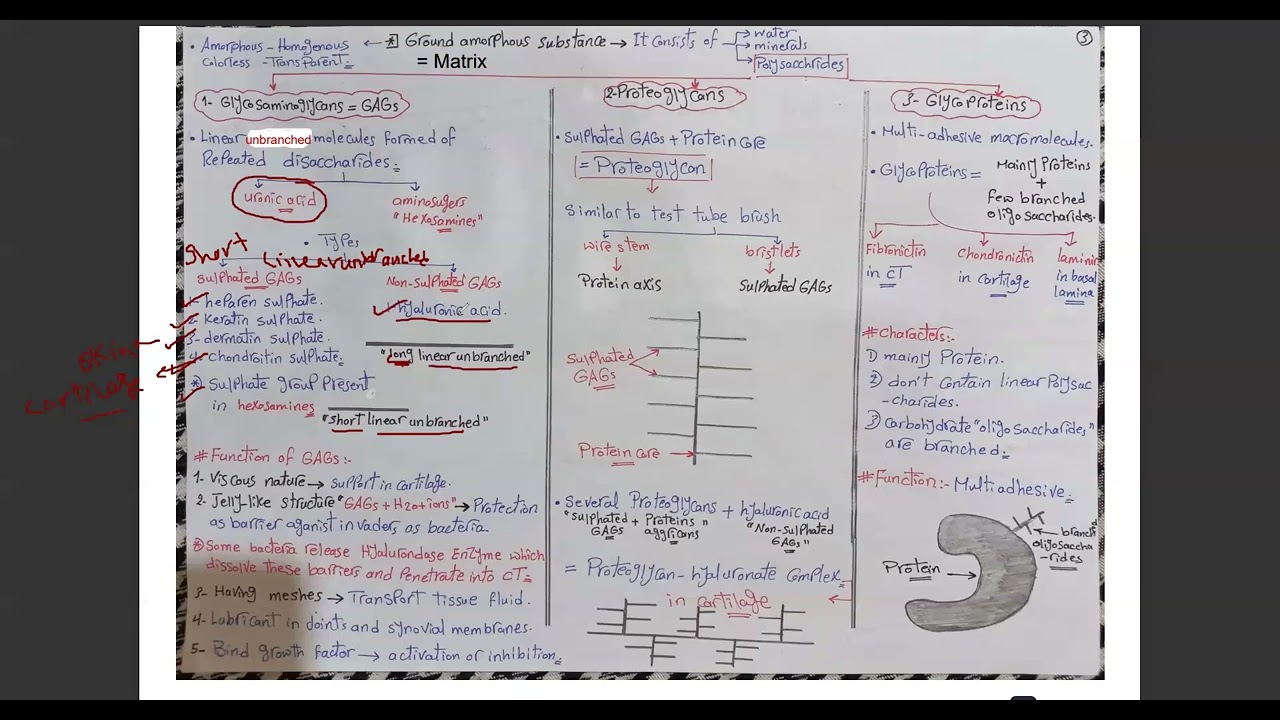 ③
• Amorphous - Homogenous ← * Ground amorphous substance → It consists of → water
→ minerals
Colorless - Transparent → Polysacchrides
= Matrix
1- Glycosaminoglycans = GAGs
• Linear unbranched molecules formed of
Repeated disaccharides
uronic acid
aminosugers
"Hexosamines"
• Types
Short Linear unbranched
sulphated GAGs
Non-Sulphated GAGs
1- heparen sulphate.
2- Keratin sulphate.
3- dermatin sulphate.
4- chondroitin sulphate
skin
cartilage
hyaluronic acid.
"long linear unbranched"
* Sulphate group Present
in hexosamines
"short linear unbranched"
# Function of GAGs:-
1- Viscous nature → support in cartilage.
2- Jelly-like structure "GAGs + H2O + ions" → Protection
as barrier aganist invaders as bacteria.
* Some bacteria release Hyalurondase Enzyme which
dissolve these barriers and Penetrate into CT
3- Having meshes → Transport tissue fluid.
4- Lubricant in joints and synovial membranes.
5- Bind growth factor → activation or inhibition
2-Proteoglycans
• sulphated GAGs + Protein core
= Proteoglycan
Similar to test tube brush
wire stem
bristlets
Protein axis
Sulphated GAGs
Sulphated
GAGs
Protein core
• Several Proteoglycans + hyaluronic acid
"sulphated + Proteins"
GAGs aggricans
"Non-sulphated
GAGs"
= Proteoglycan-hyaluronate Complex
in cartilage
3- Glycoproteins
• Multi-adhesive macromolecules.
• Glycoproteins = Mainly Proteins
+
few branched
oligosaccharides.
Fibronictin
in CT
chondronictin
in cartilage
laminin
in basal
lamina
# Characters:-
1) mainly Protein.
2) don't contain linear Polysac
-charides.
3) carbohydrate "oligosaccharides"
are branched
# Function:- Multiadhesive
Protein →
branchd
oligosaccha
-rides